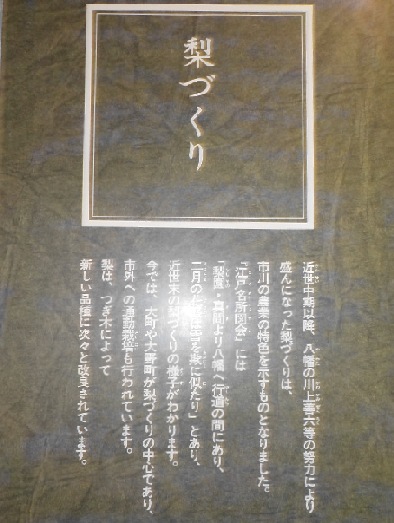 梨づくり
近世中期以降、八幡の川上善六等の努力により
盛んになった梨づくりは、
市川の農業の特色を示すものとなりました。
『江戸名所図会』には
「梨園・真間より八幡へ行道の間にあり、
二月の
似たり」とあり、
近世末の梨づくりの様子がわかります。
今では、大町や大野町が梨づくりの中心であり、
市外への通勤栽培も行われています。
梨は、つぎ木によって
新しい品種に次々と改良されています。